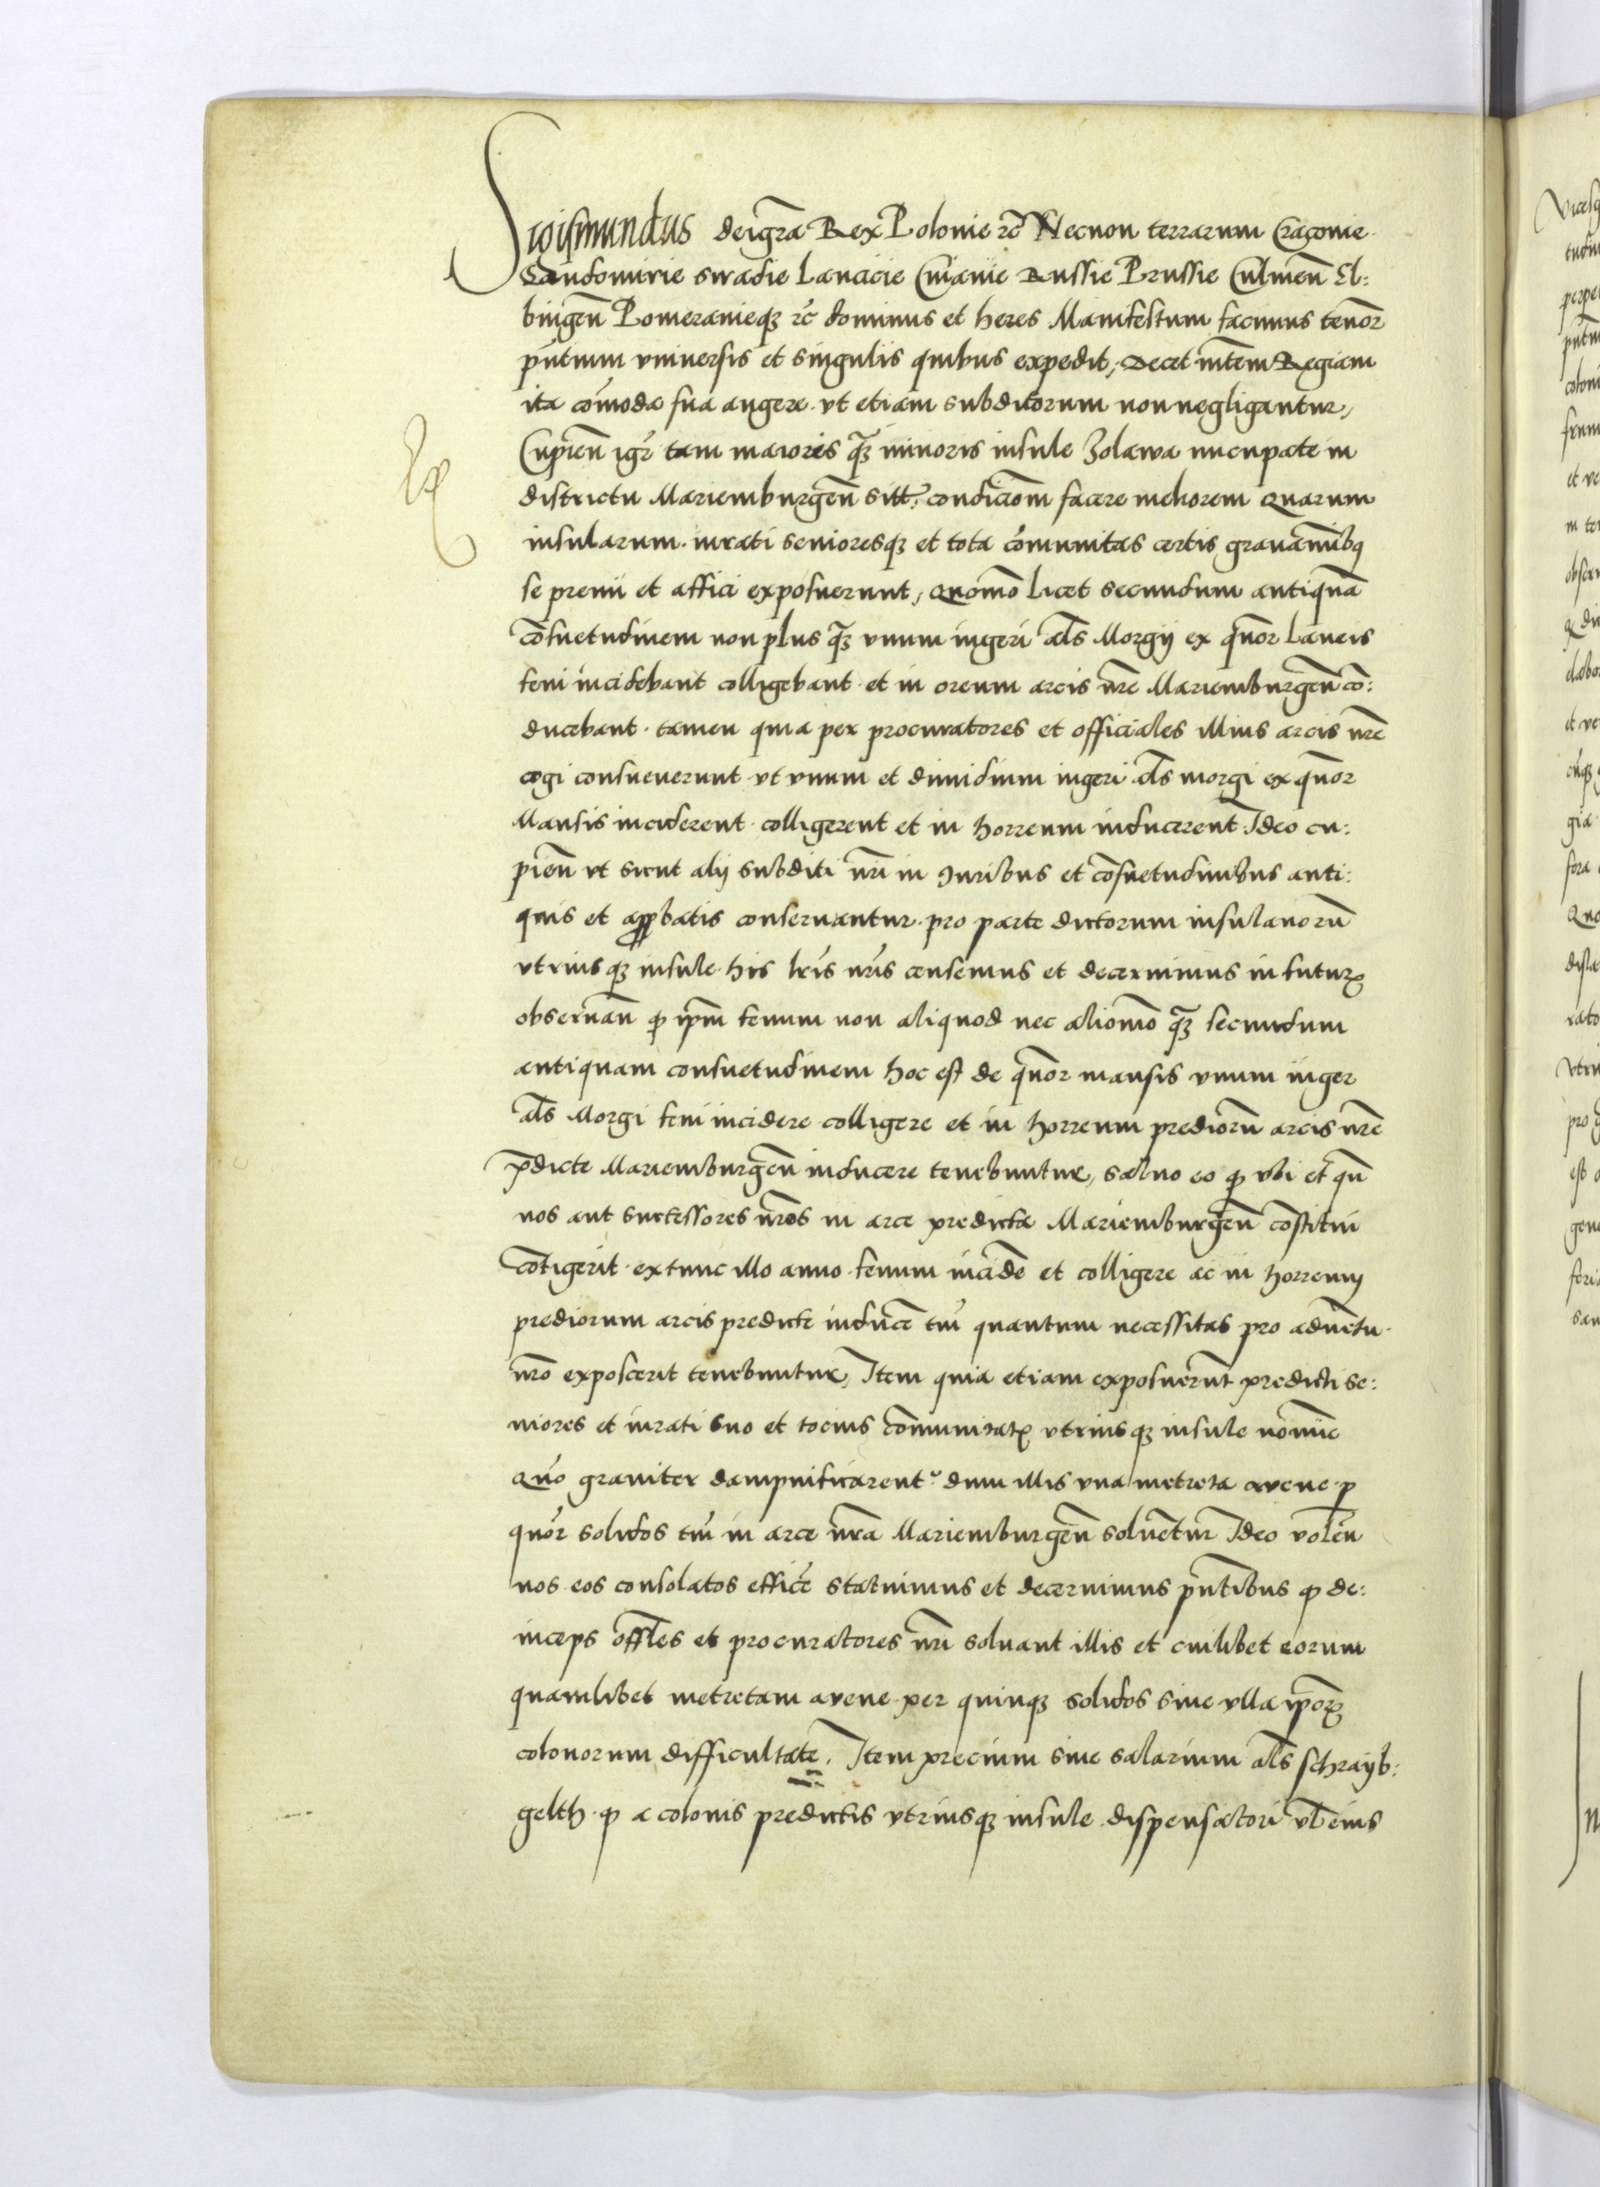 Sigismundus dei grã Rex Polonie ⁊c̃ Necnon terrarum Cracouie
Sandomirie Siradie Lancicie Cuiauie Russie Prussie Culmeñ El:
bingeñ Pomeranieqꝫ ⁊c̃ dominus et heres Manifestum facimus tenor̃
p̃ntium vniuersis et singulis quibus expedit, Decet m̃tem Regiam
ita com̃oda sua augere vt etiam subditorum non negligantur,
Cupieñ igr̃ tam maioris q̃ꝫ minoris insule Zolawa nucupate in
districtu Mariemburgeñ sitt. condicõm facere meliorem Quarum
insularum iurati senioresqꝫ et tota com̃unitas certis grauam̃ibꝯ
se premi et affici exposuerunt, Quomõ licet secundum antiquã
cõsuetudinem non plus q̃ꝫ vnum iugeri al̃s Morgij ex quãor laneis
feni incidebant colligebant et in oreum arcis nr̃e Mariemburgeñ cõ:
ducebant tamen quia per procuratores et officiales illius arcis nr̃e
cogi consueuerunt vt vnum et dimidium iugeri al̃s morgi ex quãor
Mansis inciderent colligerent et in horreum inducerent Ideo cu:
pieñ vt sicut alij subditi nr̃i in Iuribus et cõsuetudinibus anti:
quis et apꝓbatis conseruantur pro parte dictorum insulanorũ
vtriusqꝫ insule his lr̃is nr̃is censemus et decernimus in futurꝝ
obseruañ ꝙ ip̃m fenum non aliquod nec aliomõ q̃ꝫ secundum
antiquam consuetudinem hoc est de quãor mansis vnum iuger
al̃s Morgi feni incidere colligere et in horreum prediorũ arcis nr̃e
p̃dicte Mariemburgeñ inducere tenebuntur, saluo eo ꝙ vbi et qñ
nos aut successores nr̃os in arce predicta Mariemburgeñ cõstitui
cõtigerit extunc illo anno fenum incidẽ et colligere ac in horreum
prediorum arcis predicte inducẽ tm̃ quantum necessitas pro aduẽtu
nr̃o exposcerit tenebuntur, Item quia etiam exposuerũt predicti se:
niores et iurati suo et tocius com̃unitatꝭ vtriusqꝫ insule nomĩe
Quõ grauiter dampnificarentᷣ dum illis vna metreta auene p̱
quõr solidos tm̃ in arce nr̃a Mariemburgeñ soluẽtur Ideo voleñ
nos eos consolatos efficẽ statuimus et decernimus p̃ntibus ꝙ de:
inceps offl̃es et procuratores nr̃i soluant illis et cuilibet eorum
quamlibet metretam auene per quinqꝫ solidos sine vlla ip̃orꝝ
colonorum difficultate. Item precium siue salarium al̃s schrayb:
gelth ꝙ a colonis predictis vtriusqꝫ insule dispensatori vl̃ eius